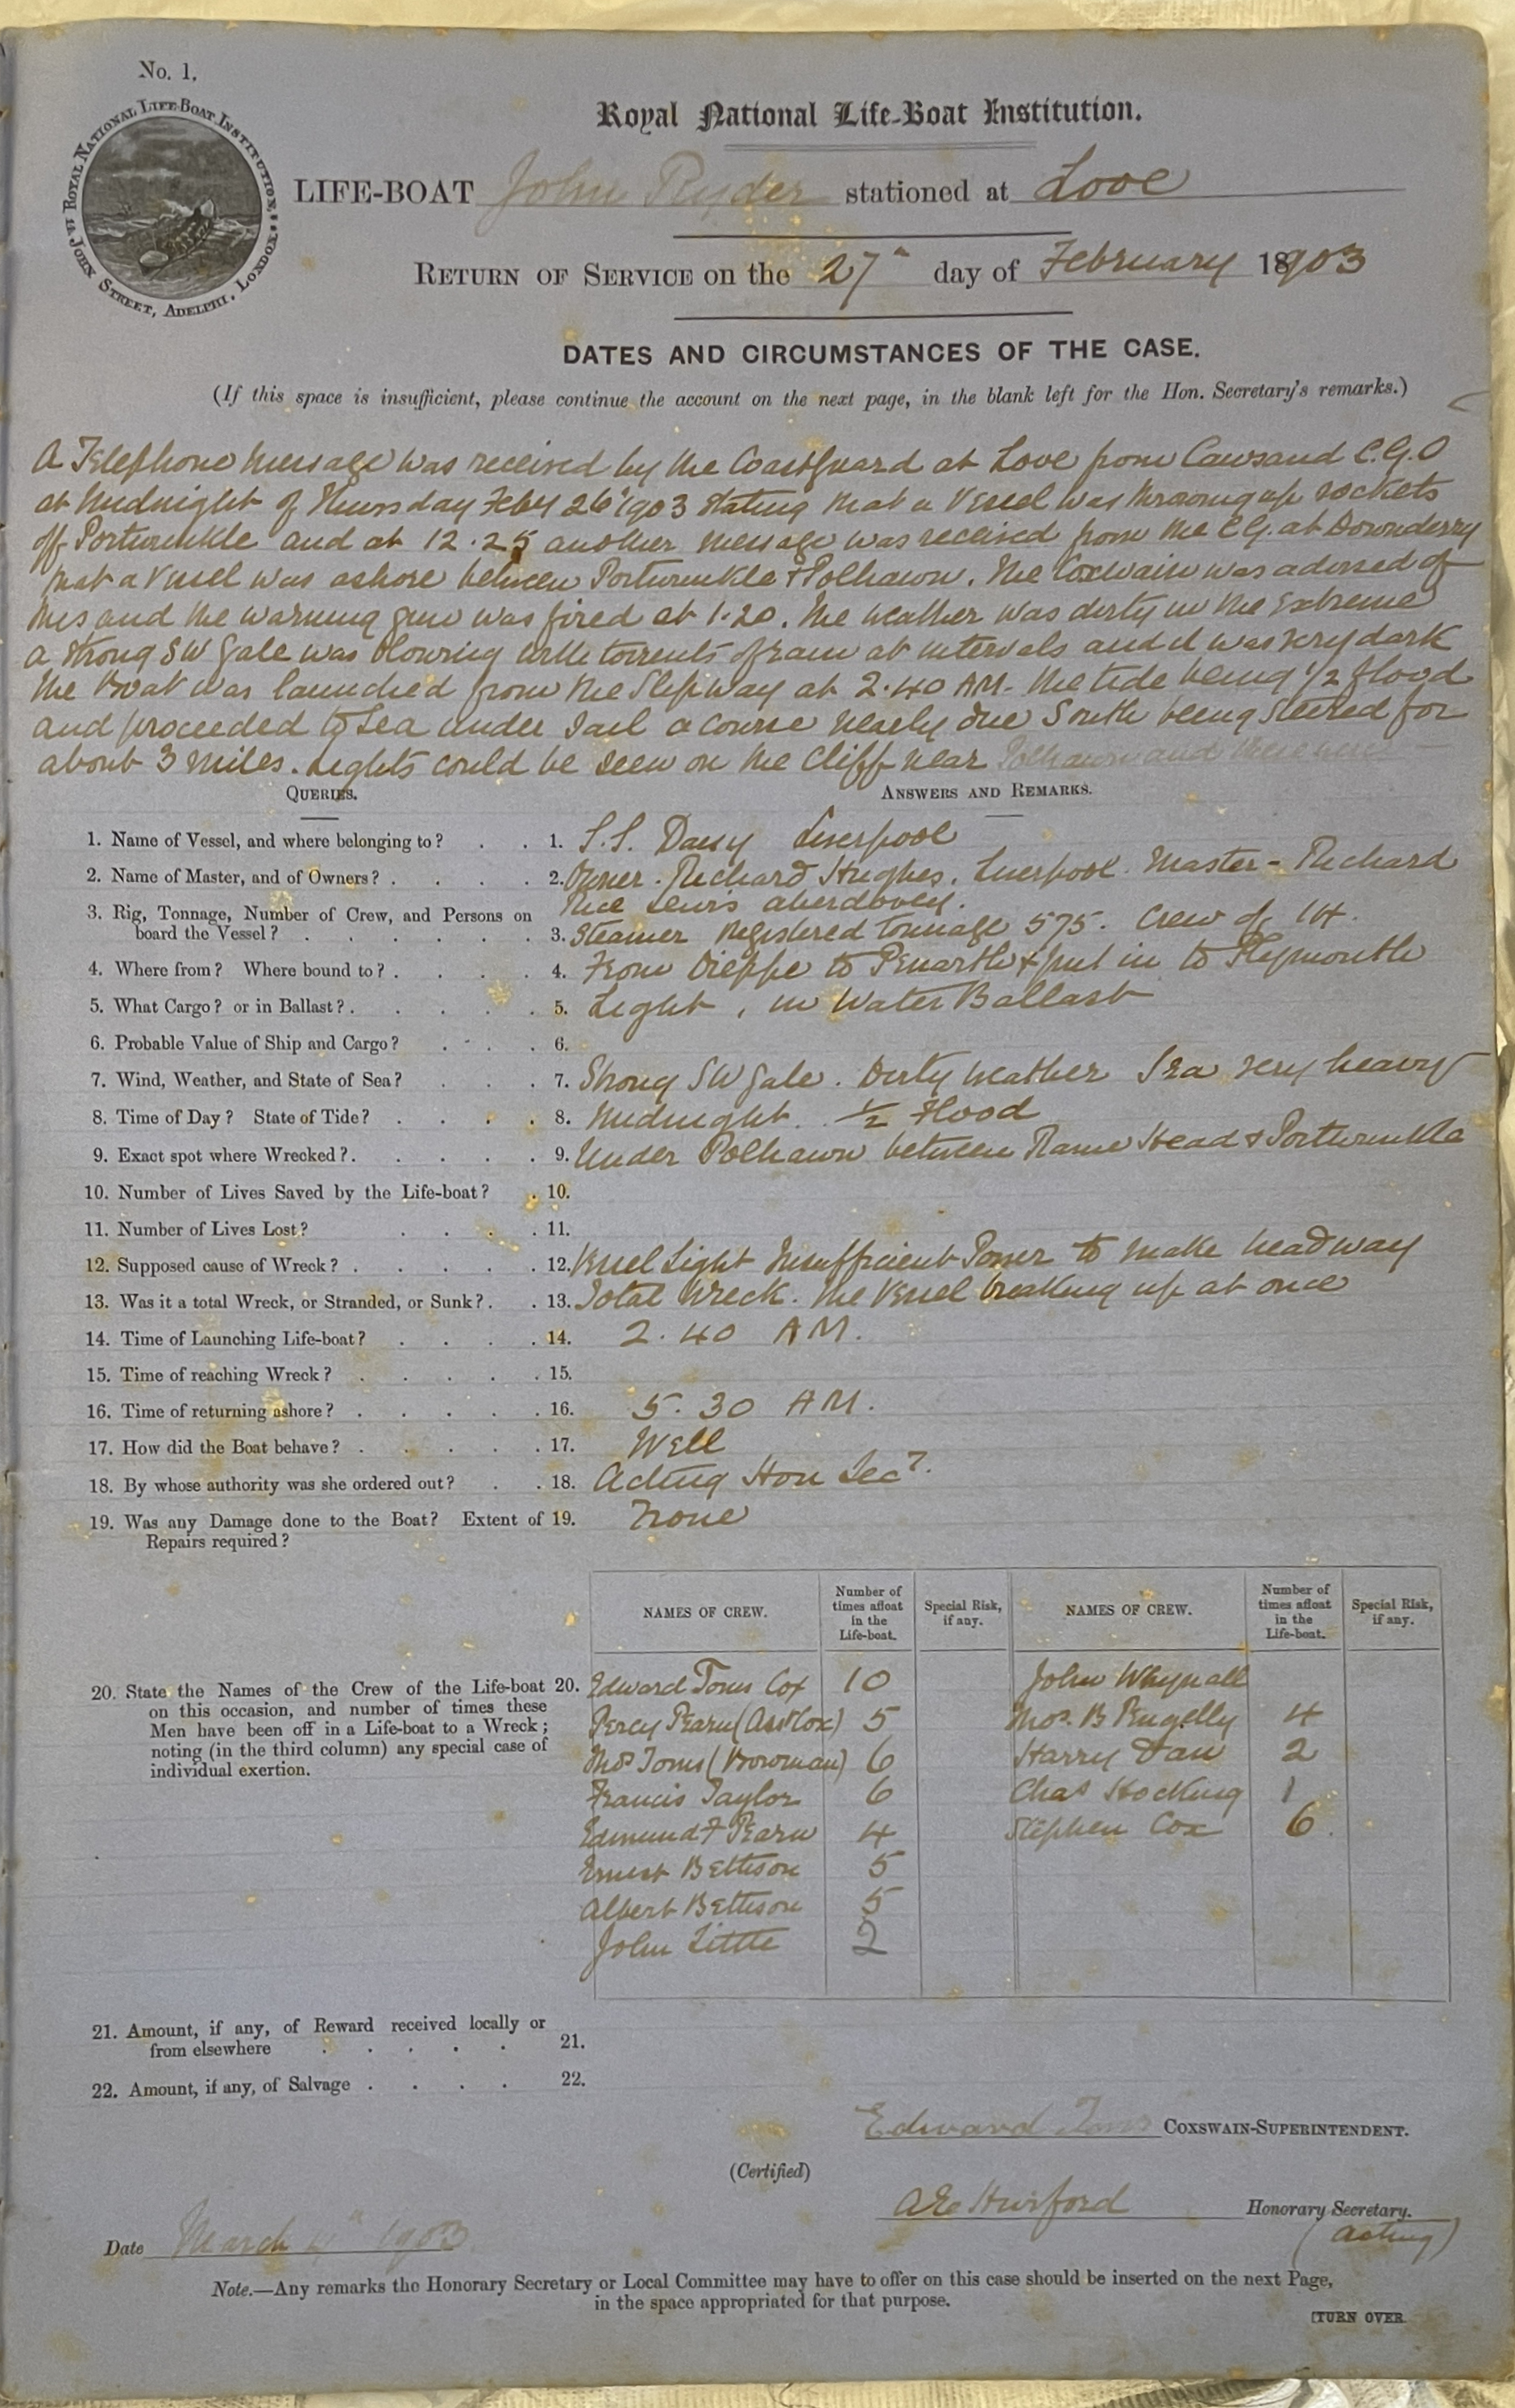 No. 1.
ROYAL NATIONAL LIFE-BOAT INSTITUTION, 14 JOHN STREET, ADELPHI, LONDON.
Royal National Life-Boat Institution.
LIFE-BOAT John Ryder stationed at Looe
RETURN OF SERVICE on the 27th day of February 1903
DATES AND CIRCUMSTANCES OF THE CASE.
(If this space is insufficient, please continue the account on the next page, in the blank left for the Hon. Secretary's remarks.)
A Telephone Message was received by the Coastguard at Looe from Cawsand C.G.O
at Midnight of Thursday Feby 26th 1903 stating that a Vessel was throwing up rockets
off Portwrinkle and at 12.25 another message was received from the C.G. at Downderry
that a Vessel was ashore between Portwrinkle & Polhawn. The Coxwain was advised of
this and the warning gun was fired at 1.20. The weather was dirty in the Extreme
a strong SW Gale was blowing with torrents of rain at intervals and it was very dark
The Boat was launched from the Slipway at 2.40 AM. The tide being 1/2 flood
and proceeded to Sea under Sail a course nearly due South being steered for
about 3 miles. Lights could be seen on the Cliff near Polhawn and there were
QUERIES.
ANSWERS AND REMARKS.
1. Name of Vessel, and where belonging to? 1. S.S. Daisy Liverpool
2. Name of Master, and of Owners? 2. Owner. Richard Hughes. Liverpool. Master - Richard
Rice Lewis aberdovey.
3. Rig, Tonnage, Number of Crew, and Persons on
board the Vessel? 3. Steamer Registered tonnage 575. Crew of 14.
4. Where from? Where bound to? 4. From Dieppe to Penarth & put in to Plymouth
5. What Cargo? or in Ballast? 5. Light, in Water Ballast
6. Probable Value of Ship and Cargo? 6.
7. Wind, Weather, and State of Sea? 7. Strong SW Gale. Dirty weather Sea very heavy
8. Time of Day? State of Tide? 8. Midnight. 1/2 Flood
9. Exact spot where Wrecked? 9. Under Polhawn between Rame Head & Portwrinkle
10. Number of Lives Saved by the Life-boat? 10.
11. Number of Lives Lost? 11.
12. Supposed cause of Wreck? 12. Vessel Light Insufficient Power to make headway
13. Was it a total Wreck, or Stranded, or Sunk? 13. Total Wreck. The Vessel breaking up at once
14. Time of Launching Life-boat? 14. 2.40 AM.
15. Time of reaching Wreck? 15.
16. Time of returning ashore? 16. 5.30 AM.
17. How did the Boat behave? 17. Well
18. By whose authority was she ordered out? 18. Acting Hon Secy.
19. Was any Damage done to the Boat? Extent of 19. None
Repairs required?
NAMES OF CREW. Number of times afloat in the Life-boat. Special Risk, if any. NAMES OF CREW. Number of times afloat in the Life-boat. Special Risk, if any.
20. State the Names of the Crew of the Life-boat 20.
on this occasion, and number of times these
Men have been off in a Life-boat to a Wreck;
noting (in the third column) any special case of
individual exertion.
Edward Toms Cox 10 John Whynall
Percy Pearn (Asst Cox) 5 Thos. B Pengelly 4
Thos Toms (Bowman) 6 Harry Dan 2
Francis Taylor 6 Chas Hocking 1
Edmund F Pearn 4 Stephen Cox 6
Ernest Bettison 5
Albert Bettison 5
John Little 2
21. Amount, if any, of Reward received locally or
from elsewhere 21.
22. Amount, if any, of Salvage 22.
Edward Toms COXSWAIN-SUPERINTENDENT.
(Certified)
Hurford Honorary Secretary.
(acting)
Date March 4th 1903
Note.—Any remarks the Honorary Secretary or Local Committee may have to offer on this case should be inserted on the next Page,
in the space appropriated for that purpose.
[TURN OVER